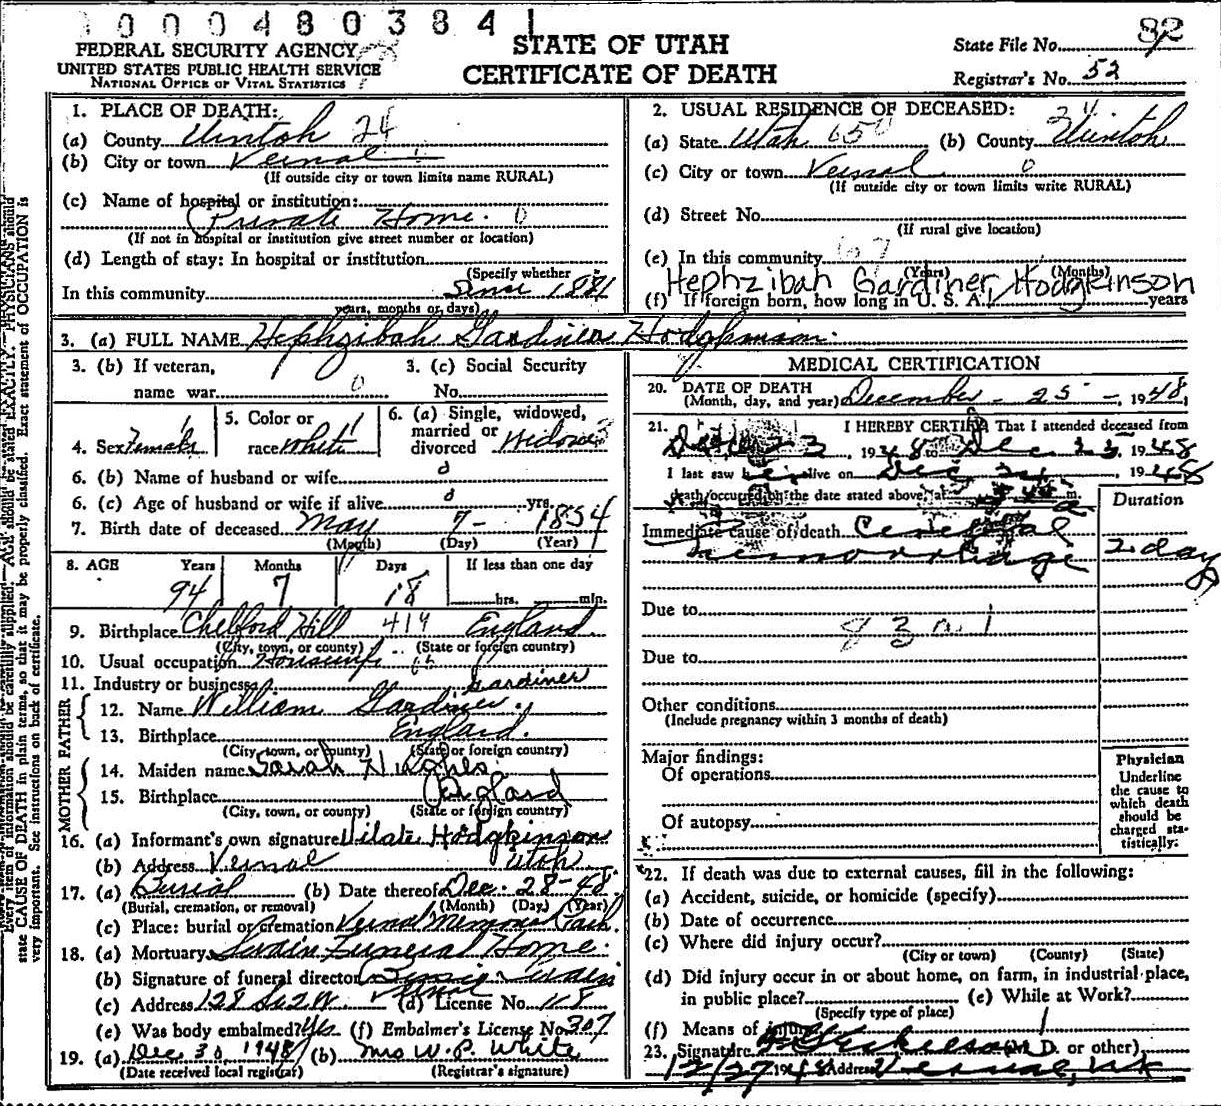 0004803841
FEDERAL SECURITY AGENCY
UNITED STATES PUBLIC HEALTH SERVICE
NATIONAL OFFICE OF VITAL STATISTICS
STATE OF UTAH
CERTIFICATE OF DEATH
State File No. 82
Registrar's No. 52
1. PLACE OF DEATH:
(a) County Uintah 24
(b) City or town Vernal
(If outside city or town limits name RURAL)
(c) Name of hospital or institution:
Private Home. 0
(If not in hospital or institution give street number or location)
(d) Length of stay: In hospital or institution
(Specify whether
In this community since 1881
years, months or days)
2. USUAL RESIDENCE OF DECEASED:
(a) State Utah 650 (b) County Uintah 24
(c) City or town Vernal 0
(If outside city or town limits write RURAL)
(d) Street No.
(If rural give location)
(e) In this community 67
(Years) (Months)
Hephzibah Gardiner Hodgkinson
(f) If foreign born, how long in U. S. A.? years
3. (a) FULL NAME Hephzibah Gardiner Hodgkinson.
3. (b) If veteran, name war 0
3. (c) Social Security No.
4. Sex Female
5. Color or race White
6. (a) Single, widowed, married or divorced Widow
6. (b) Name of husband or wife
6. (c) Age of husband or wife if alive yrs.
7. Birth date of deceased May 7- 1854
(Month) (Day) (Year)
8. AGE Years Months Days If less than one day
94 7 18 hrs. min.
9. Birthplace Chelford Hill 414 England.
(City, town, or county) (State or foreign country)
10. Usual occupation Housewife
11. Industry or business
Gardiner
FATHER
12. Name William Gardiner.
13. Birthplace England.
(City, town, or county) (State or foreign country)
MOTHER
14. Maiden name Sarah Hughes
15. Birthplace England
(City, town, or county) (State or foreign country)
16. (a) Informant's own signature Vilate Hodgkinson
(b) Address Vernal Utah
17. (a) Burial (b) Date thereof Dec. 28-48
(Burial, cremation, or removal) (Month) (Day) (Year)
(c) Place: burial or cremation Vernal Memorial Park.
18. (a) Mortuary Funeral Home.
(b) Signature of funeral director Bessie
(c) Address 128 So 2 W Vernal (d) License No. 118
(e) Was body embalmed? Yes. (f) Embalmer's License No. 307
19. (a) Dec 30, 1948 (b) Mrs W. P. White
(Date received local registrar) (Registrar's signature)
MEDICAL CERTIFICATION
20. DATE OF DEATH
(Month, day, and year) December - 25 - 1948
21. I HEREBY CERTIFY That I attended deceased from
Dec 23, 1948 to Dec. 25, 1948
I last saw her alive on Dec 24, 1948
death occurred on the date stated above, at m.
Duration
Immediate cause of death Cerebral
Hemorrhage 2 days
Due to
83 1
Due to
Other conditions
(Include pregnancy within 3 months of death)
Major findings:
Of operations
Of autopsy
Physician
Underline
the cause to
which death
should be
charged sta-
tistically:
22. If death was due to external causes, fill in the following:
(a) Accident, suicide, or homicide (specify)
(b) Date of occurrence
(c) Where did injury occur?
(City or town) (County) (State)
(d) Did injury occur in or about home, on farm, in industrial place,
in public place? (e) While at Work?
(Specify type of place)
(f) Means of injury
23. Signature (M. D. or other)
12/27 1948 Address Vernal, Utah
Every item of information should be carefully supplied. AGE should be stated EXACTLY. PHYSICIANS should
state CAUSE OF DEATH in plain terms, so that it may be properly classified. Exact statement of OCCUPATION is
very important. See instructions on back of certificate.